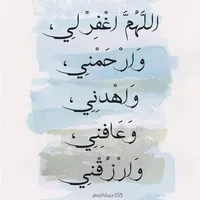 اللَّهُمَّ اغْفِرْ لِي،
وَارْحَمْنِي،
وَاهْدِنِي،
وَعَافِنِي،
وَارْزُقْنِي